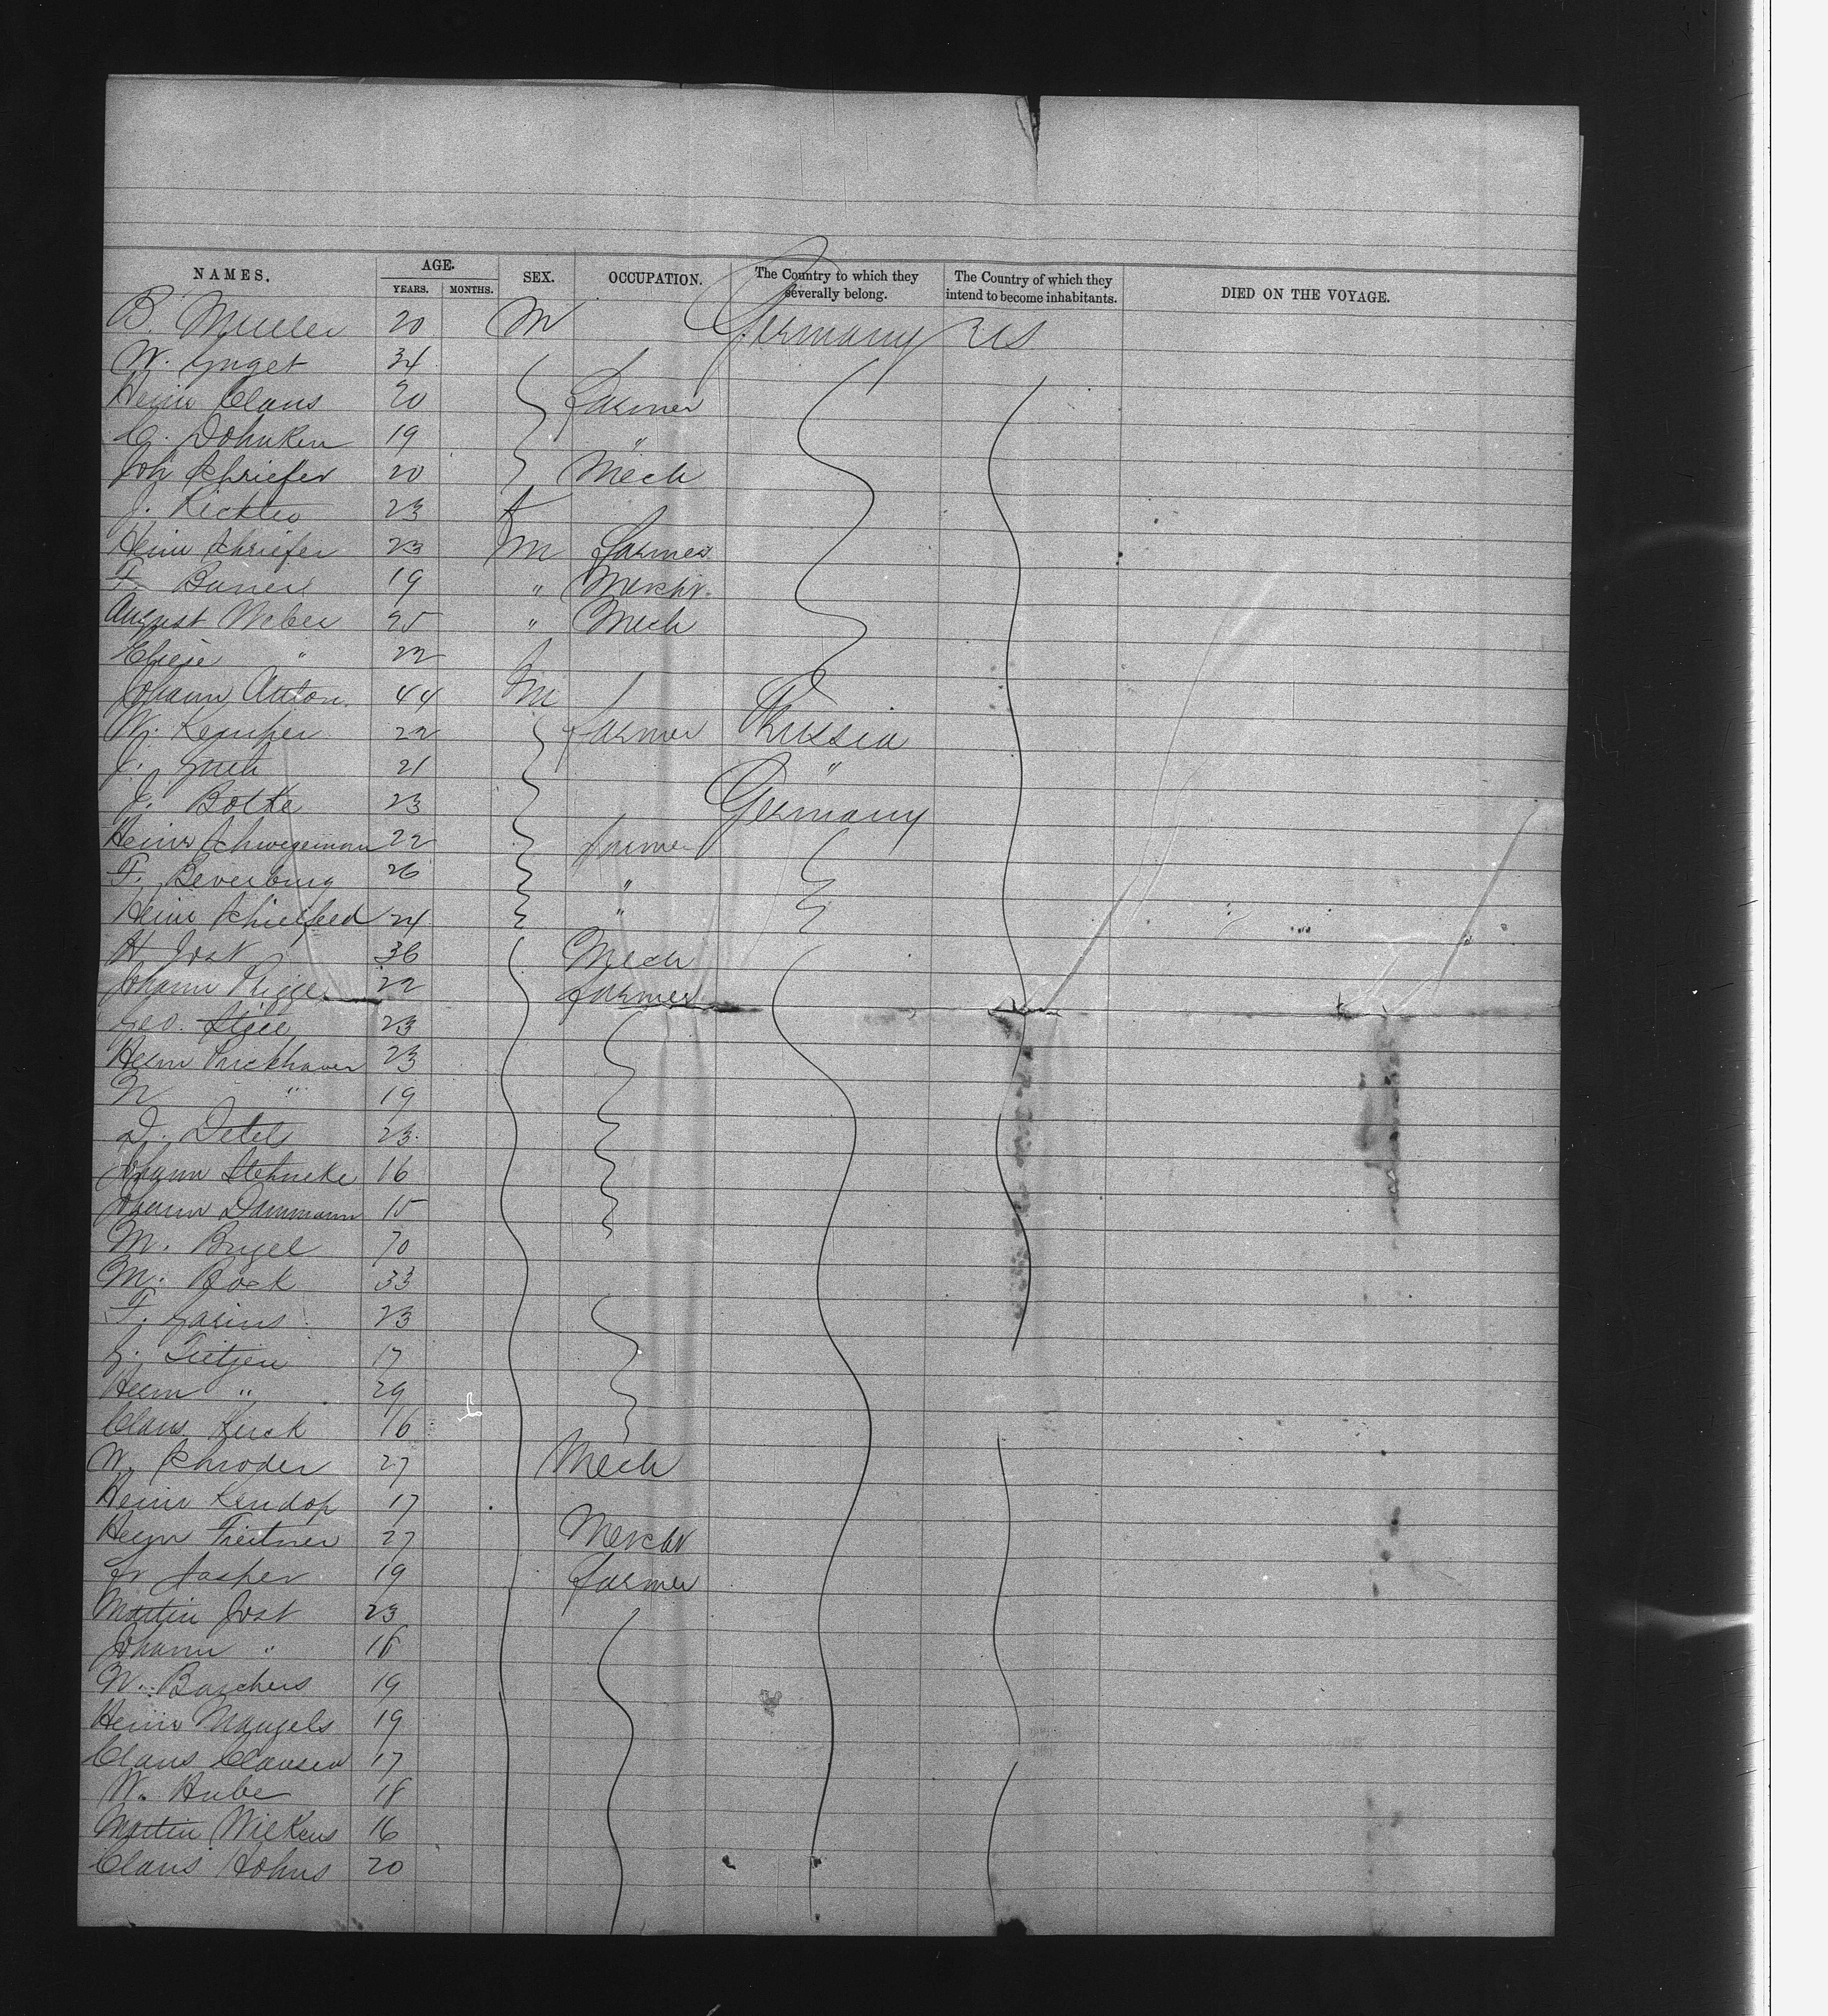 NAMES. AGE. YEARS. MONTHS. SEX. OCCUPATION. The Country to which they severally belong. The Country of which they intend to become inhabitants. DIED ON THE VOYAGE.
B. Muller 20 M Germany US
W. 34
Heinr Claus 20 Farmer
C. Dohnken 19 "
Joh Schriefer 20 Mech
J. 23 f
Heinr Schriefer 23 M farmer
F. 19 " Mercht.
August Weber 25 " Mech
" 22 f
Johann Anton. 44 M
W. Kemper 22 farmer Russia
J. 21 "
J. Bolke 23 Germany
Heinr Schwegeman 22 farmer
F. Beverburg 26 "
Heinr 24 "
H Jost 36 Mech
Johann 22 farmer
Geo. 23
Heinr 23
" 19
D. Detels 23
Johann Stehncke 16
Johann Dammann 15
M. 70
M. Bock 33
F. 23
G. Tietjen 17
Heinr " 29
Claus 16
W. Schroder 27 Mech
Heinr 17
Heinr 27 Mercht
Fr Jasper 19 farmer
Martin Jost 23
Johann " 18
W. 19
Heinr Mangels 19
Claus Clausen 17
W. Hube 18
Martin Wilkens 16
Claus Hohns 20